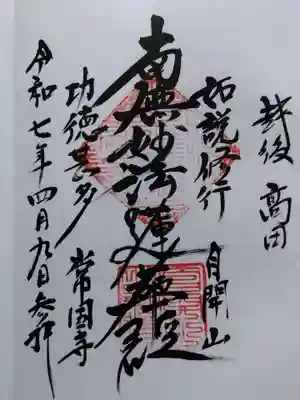 越後 高田
如説修行
月開山
南無妙法蓮華経
功徳甚多
常国寺
令和七年四月九日参拝